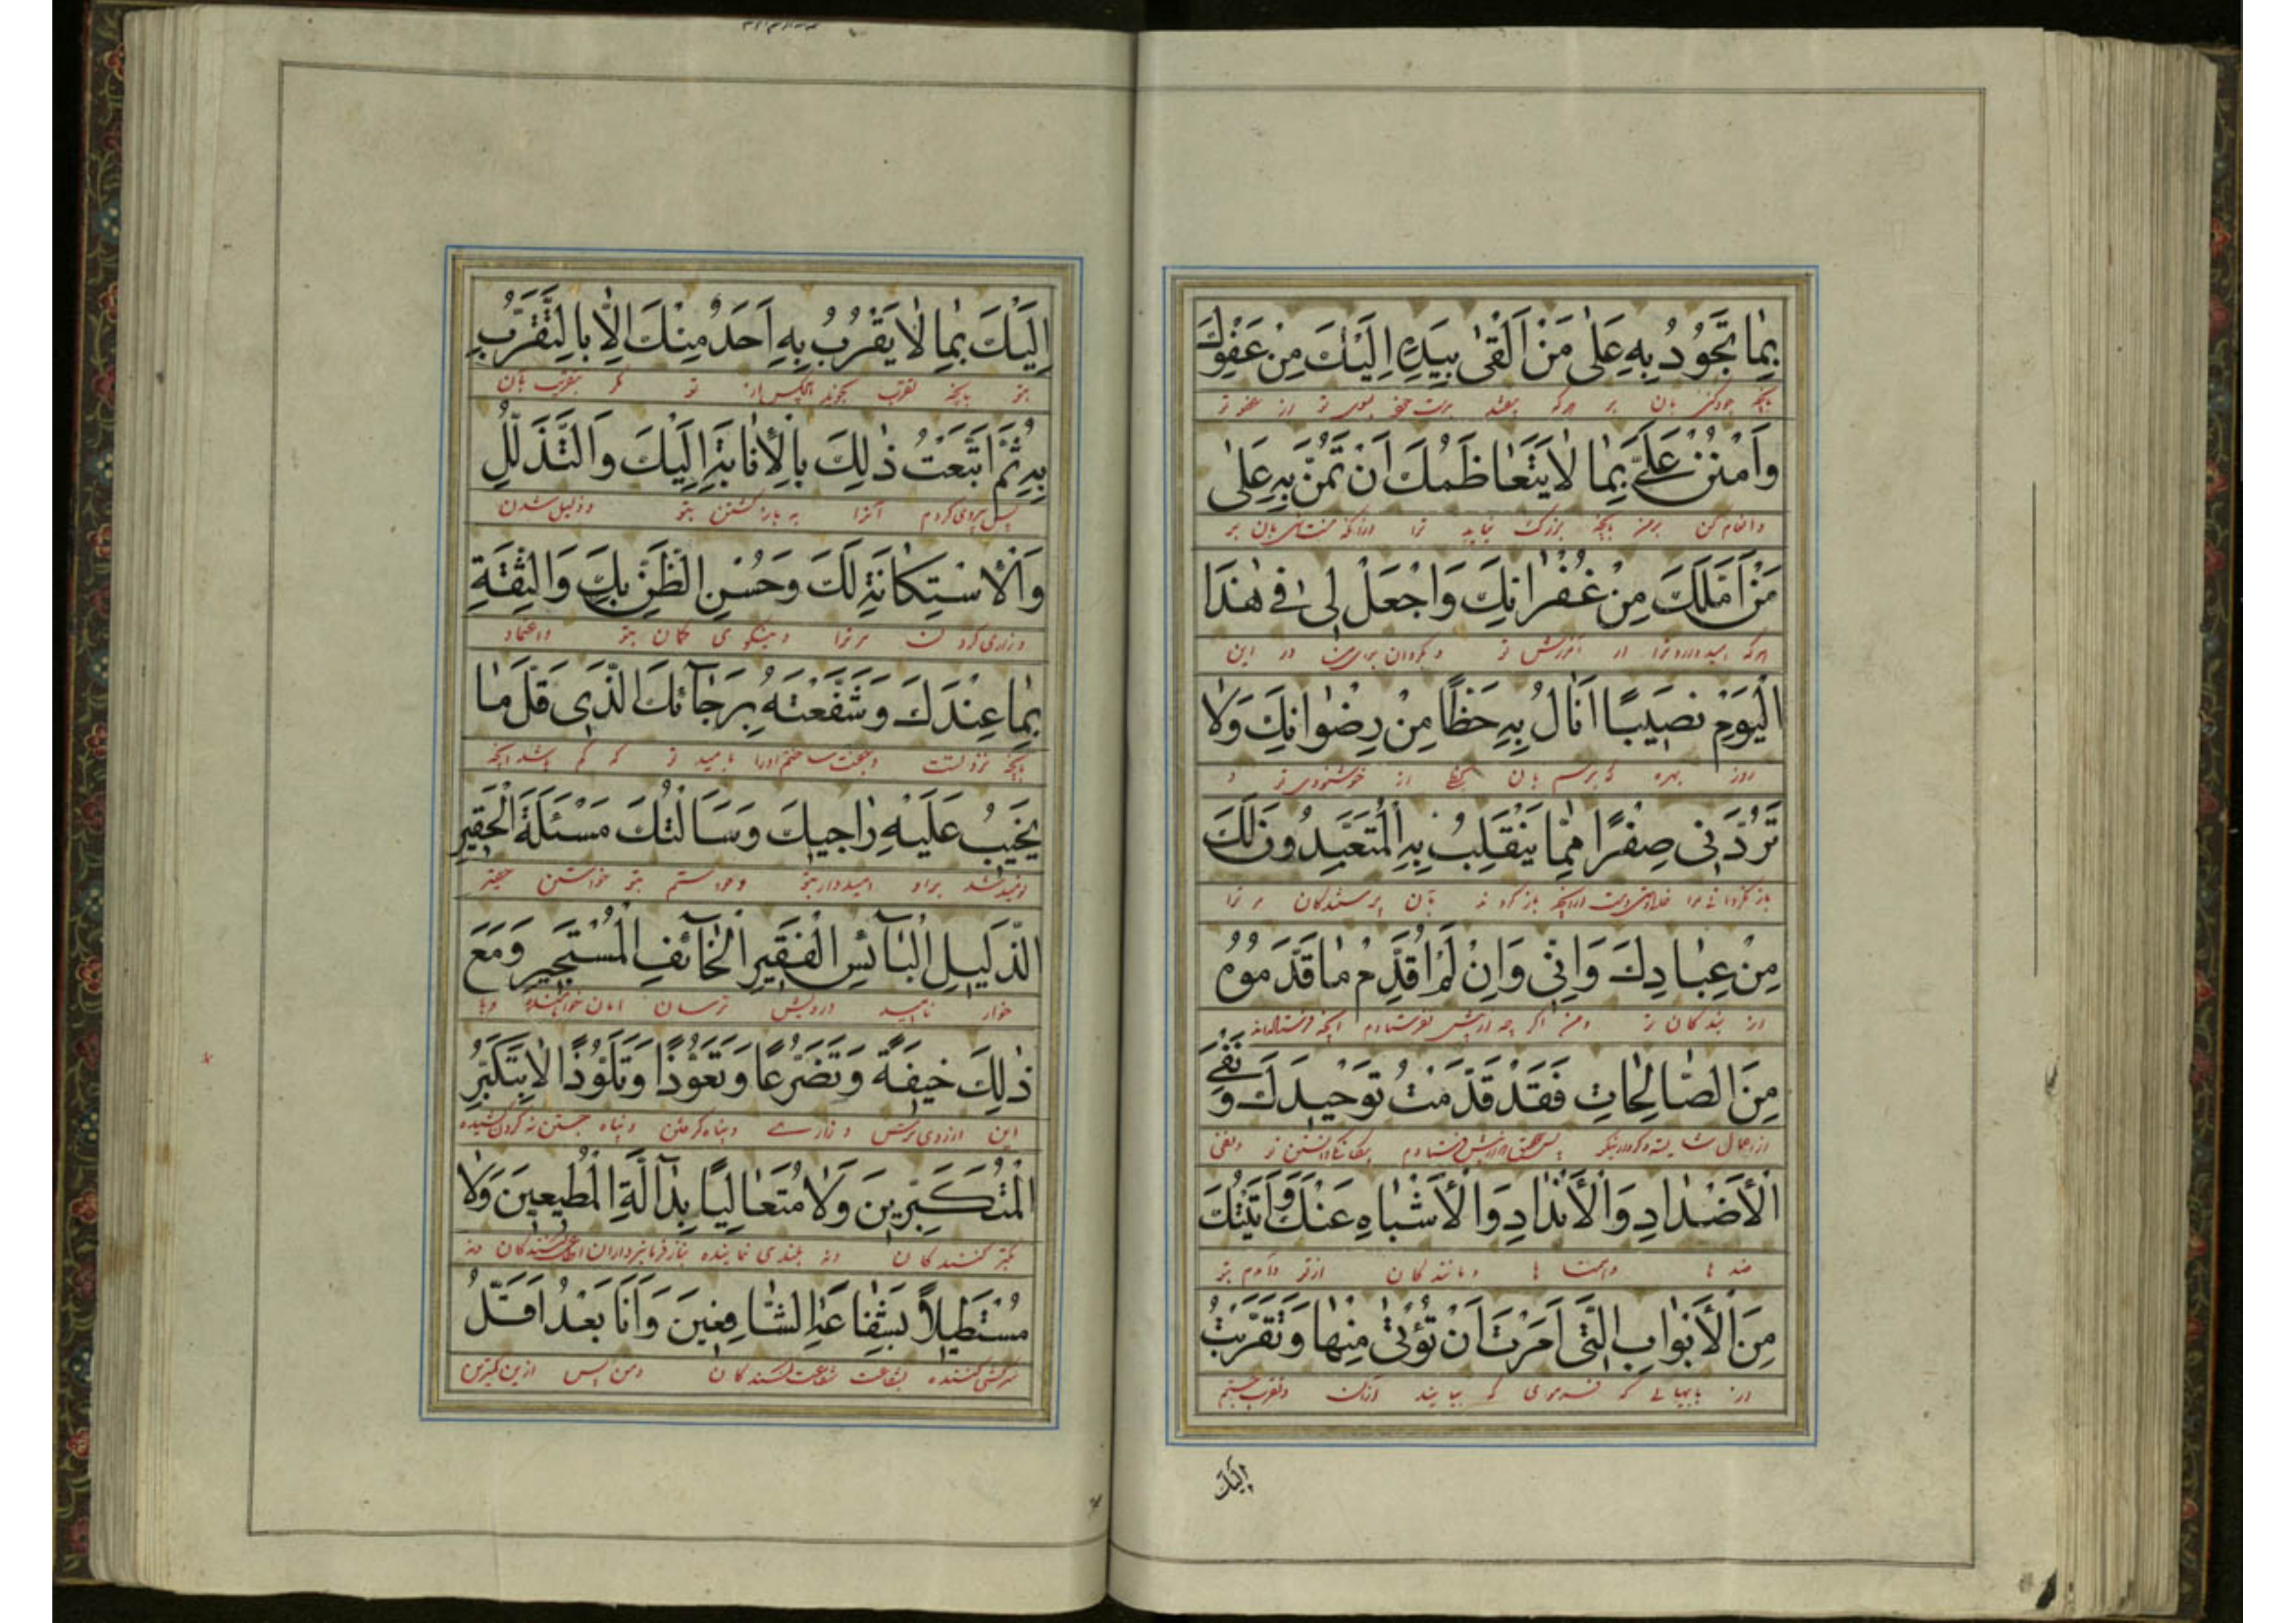 بِمٰا تَجُوُدُ بِهِ عَلىٰ مَنْ اَلْقىٰ بِيَدِهِ اِلَيْكَ مِنْ عَفْوِكَ
بانچه جود کنی بان بر هرکه بیفکند بدست خود بسوی تو از عفو تو
وَامْنُنْ عَلَىَّ بِمٰا لاٰ يَتَعٰاظَمُكَ اَنْ تَمُنَّ بِهِ عَلىٰ
وانعام کن برمن بانچه بزرگ نیاید ترا ازانکه منت نهی بان بر
مَنْ اَمَّلَكَ مِنْ غُفْرٰانِكَ وَاجْعَلْ لى فى هٰذَا
هرکه امید دارد ترا از آمرزش تو و بگردان برای من در این
الْيَوْمِ نَصيبًا اَنٰالُ بِهِ حَظًّا مِنْ رِضْوٰانِكَ وَلاٰ
روز بهره که برسم بان بحظی از خوشنودی تو و
تَرُدَّنى صِفْرًا مِمّٰا يَنْقَلِبُ بِهِ الْمُتَعَبِّدُونَ لَكَ
باز نگردانی مرا خالی دست ازانچه باز گردند بآن پرستندگان مر ترا
مِنْ عِبٰادِكَ وَاِنّى وَاِنْ لَمْ اُقَدِّمْ مٰا قَدَّمُوهُ
از بندگان تو ومن اگر چه از پیش نفرستادم آنچه فرستاده‌اند
مِنَ الصّٰالِحٰاتِ فَقَدْ قَدَّمْتُ تَوْحيدَكَ وَ نَفْىَ
الْأَضْدٰادِ وَالْأَنْدٰادِ وَالْأَشْبٰاهِ عَنْكَ وَاَتَيْتُكَ
ضد ها وهمتا ها ومانندگان ازتو وآمدم بتو
مِنَ الْأَبْوٰابِ الَّتى اَمَرْتَ اَنْ تُؤْتىٰ مِنْهٰا وَتَقَرَّبْتُ
از بابهایی که فرمودی که بیایند ازان وتقرب جستم
اِلَيْكَ
اِلَيْكَ بِمٰا لاٰ يَقْرُبُ بِهِ اَحَدٌ مِنْكَ اِلّاٰ بِالتَّقَرُّبِ
بتو بانچه تقرب نجوید هیچکس از تو مگر بتقرب بان
بِهِ ثُمَّ اَتْبَعْتُ ذٰلِكَ بِالْأِنٰابَةِ اِلَيْكَ وَالتَّذَلُّلِ
پس پیروی کردم آنرا به بازگشتن بتو وذلیل شدن
وَالْاسْتِكٰانَةِ لَكَ وَحُسْنِ الظَّنِّ بِكَ وَالثِّقَةِ
وزاری کردن مر ترا ونیکوئی گمان بتو واعتماد
بِمٰا عِنْدَكَ وَشَفَّعْتُهُ بِرَجٰآئِكَ الَّذى قَلَّ مٰا
بانچه نزد تست وجفت ساختم اورا بامید تو که کم باشد انچه
يَخيبُ عَلَيْهِ رٰاجيكَ وَسَاَلْتُكَ مَسْئَلَةَ الْحَقيرِ
نومید شد براو امیدوار بتو
الذَّليلِ الْبٰآئِسِ الْفَقيرِ الْخٰآئِفِ الْمُسْتَجيرِ وَمَعَ
خوار ناامید درویش ترسان امان خواهنده وبا
ذٰلِكَ خيفَةً وَتَضَرُّعًا وَتَعَوُّذًا وَتَلَوُّذًا لاٰ بِتَكَبُّرِ
این ازروی ترس وزاری وپناه گرفتن وپناه جستن نه گردن کشیده
الْمُتَكَبِّرينَ وَلاٰ مُتَعٰالِيًا بِدٰآلَّةِ الْمُطيعينَ وَلاٰ
تکبر کنندگان ونه بلندی نماینده بناز فرمانبرداران ونه
مُسْتَطيلاً بِشَفٰاعَةِ الشّٰافِعينَ وَاَنَا بَعْدُ اَقَلُّ
سرکشی کننده بشفاعت شفاعت کنندگان ومن پس ازین کمترین